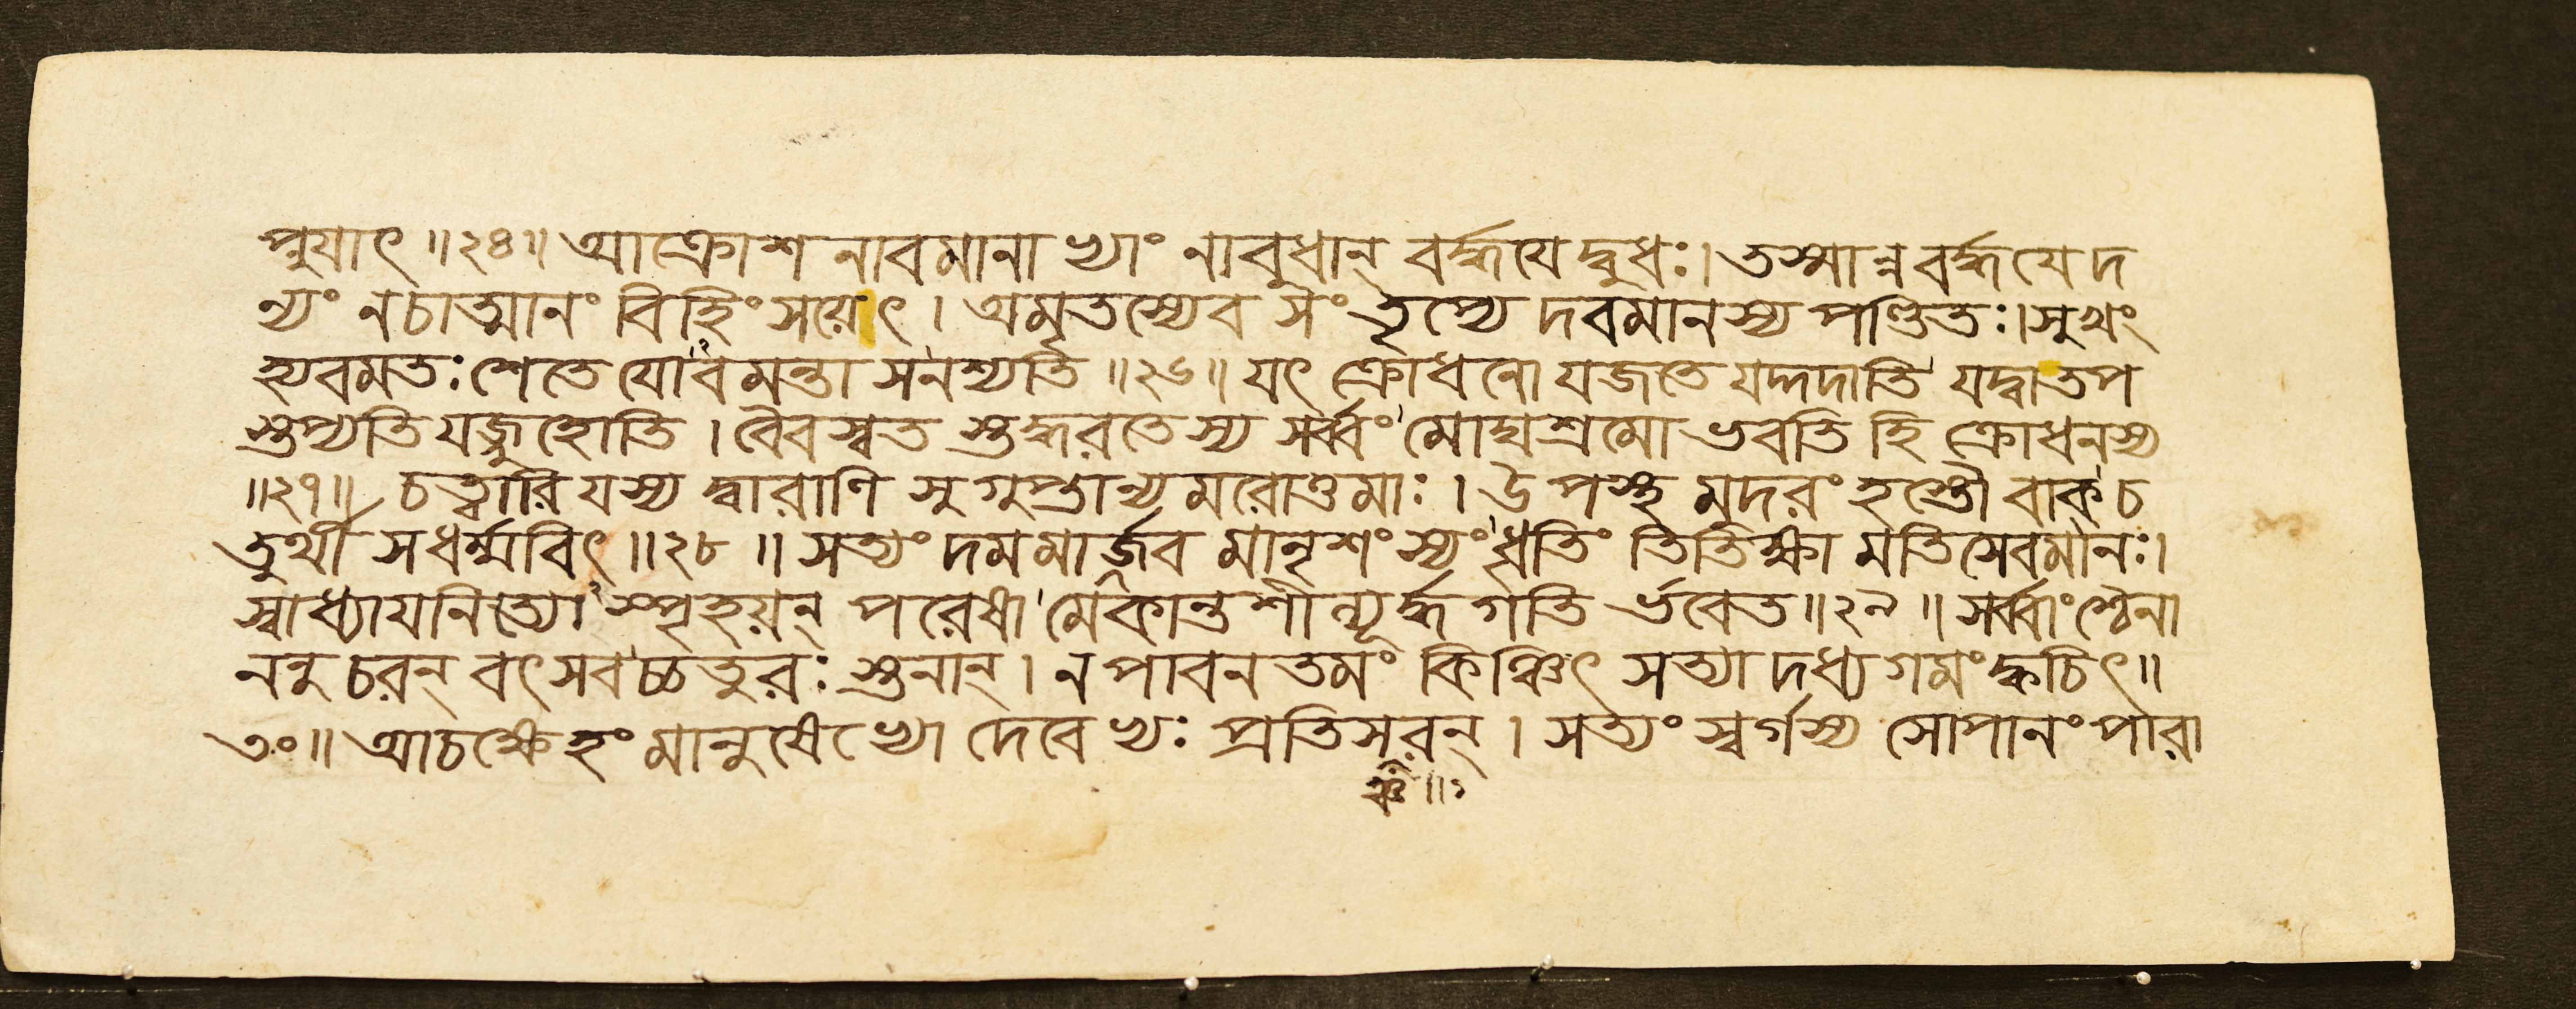 প্নুযাৎ ॥২৪॥ আক্রোশ নাবমানা ভ্যাং নাবুধান্ বর্হ্ময়েদ্বুধঃ। তস্মান্ন বর্হ্ময়েদ
ন্যং নচাত্মানং বিহিংসয়েৎ । অমৃতস্যেব সং তৃপ্যে দবমানস্য পণ্ডিতঃ। সুখং
হ্যবমতঃ শেতে যোবমন্তা সনশ্যতি ॥২৬॥ যৎ ক্রোধনো যজতে যদ্দদাতি যদ্বা তপ
স্তপ্যতি যজ্জুহোতি । বৈবস্বত স্তদ্ধরতেস্য সর্ব্বং মোঘশ্রমো ভবতি হি ক্রোধনস্য
॥২৭॥ চত্বারি যস্য দ্বারাণি সুগুপ্তান্যমরোত্তমাঃ । উপস্থ মুদরং হস্তৌ বাক্ চ
তুর্থী সধর্ম্মবিৎ ॥২৮॥ সত্যং দমমার্জব মানৃশংস্যং ধৃতিং তিতিক্ষা মতিসেবমানঃ।
স্বাধ্যাযনিত্যো স্পৃহয়ন্ পরেষা মেকান্তশীল্যূর্দ্ধ গতি র্ভবেত ॥২৯॥ সর্ব্বাংশ্চেনা
ননুচরন্ বৎসবচ্চতুরঃ স্তনান্ । ন পাবনতমং কিঞ্চিৎ সত্যা দধ্যগমং ক্বচিৎ॥
৩০॥ আচক্ষেহং মানুষেভ্যো দেবেভ্যঃ প্রতিসরন্ । সত্যং স্বর্গস্য সোপানং পারা
ঞ্চ॥